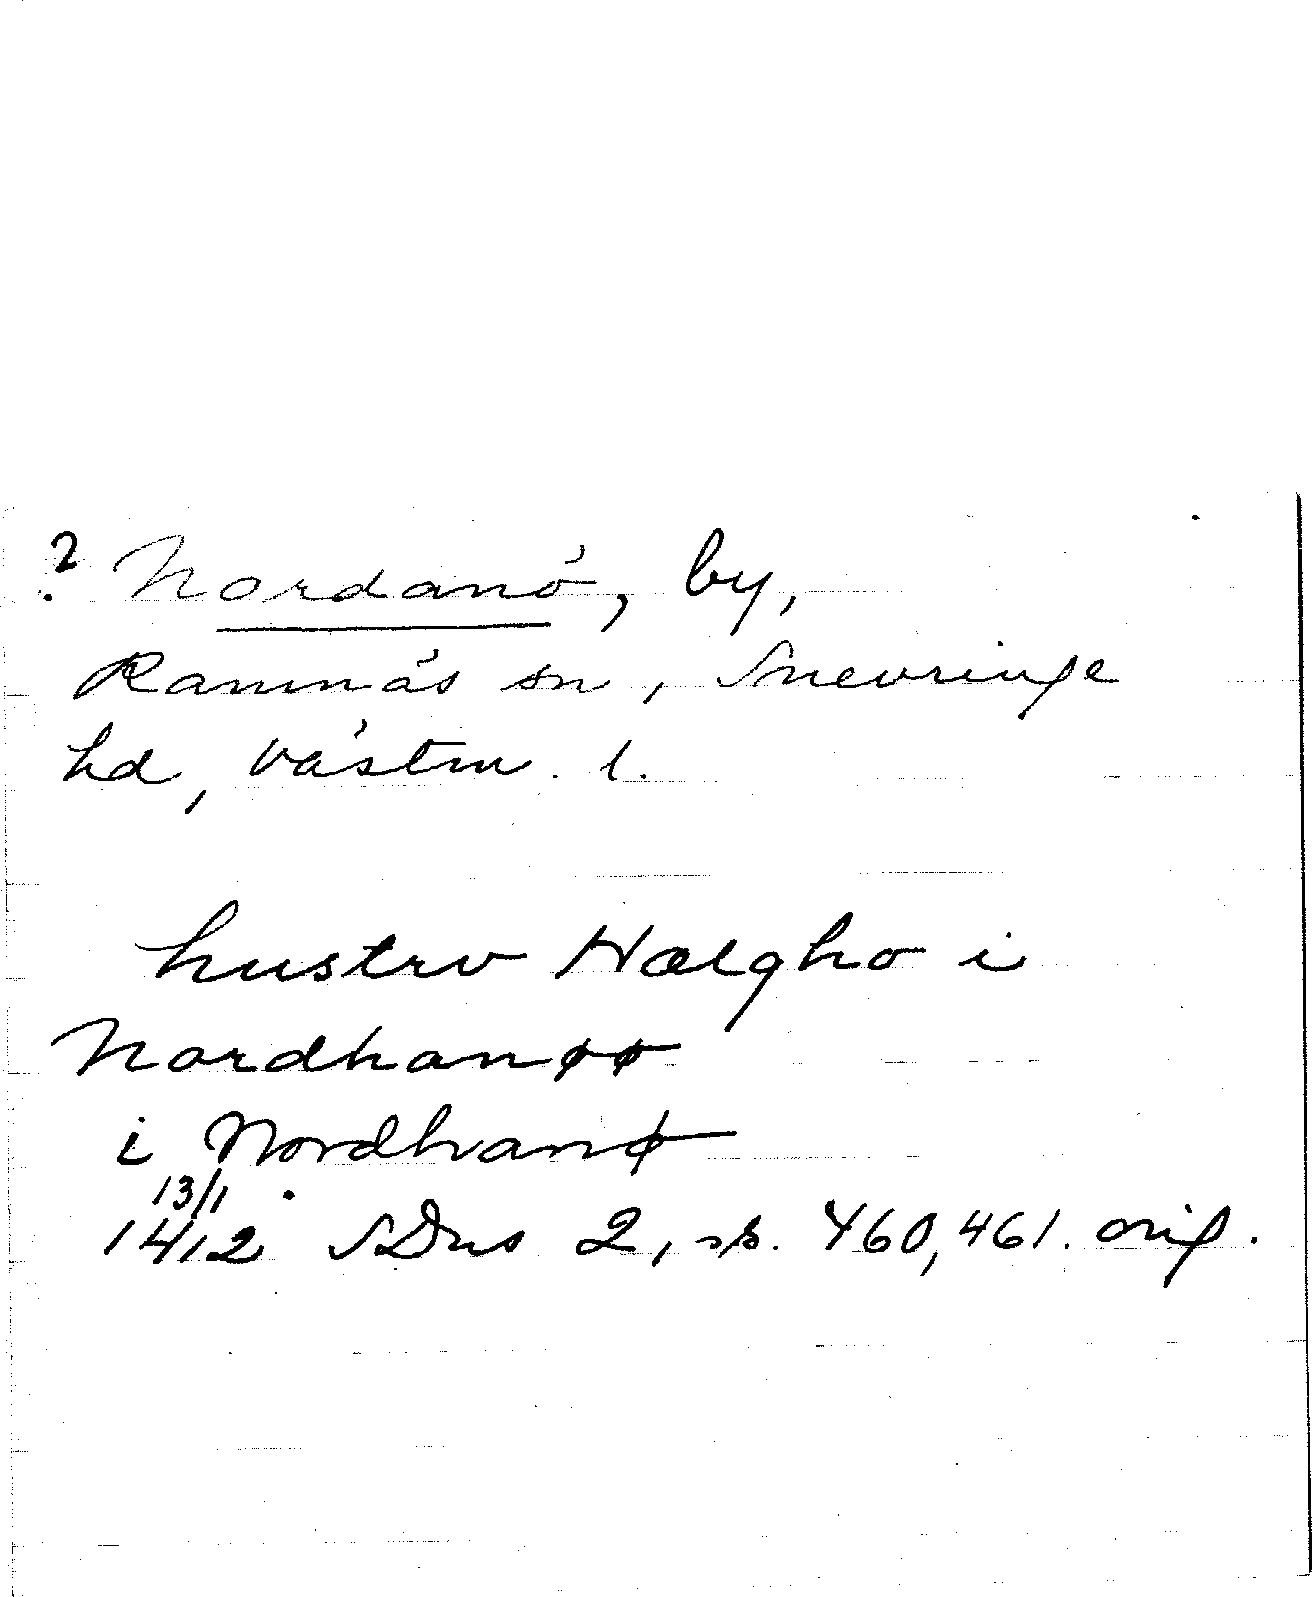 ? Nordanö, by,
Ramnäs sn, Snevringe
hd, Västm. l.
hustrv Hælgho i
Nordhanøø
i Nordhanø
13/1
1412 SDns 2, ss. 460, 461. orig.